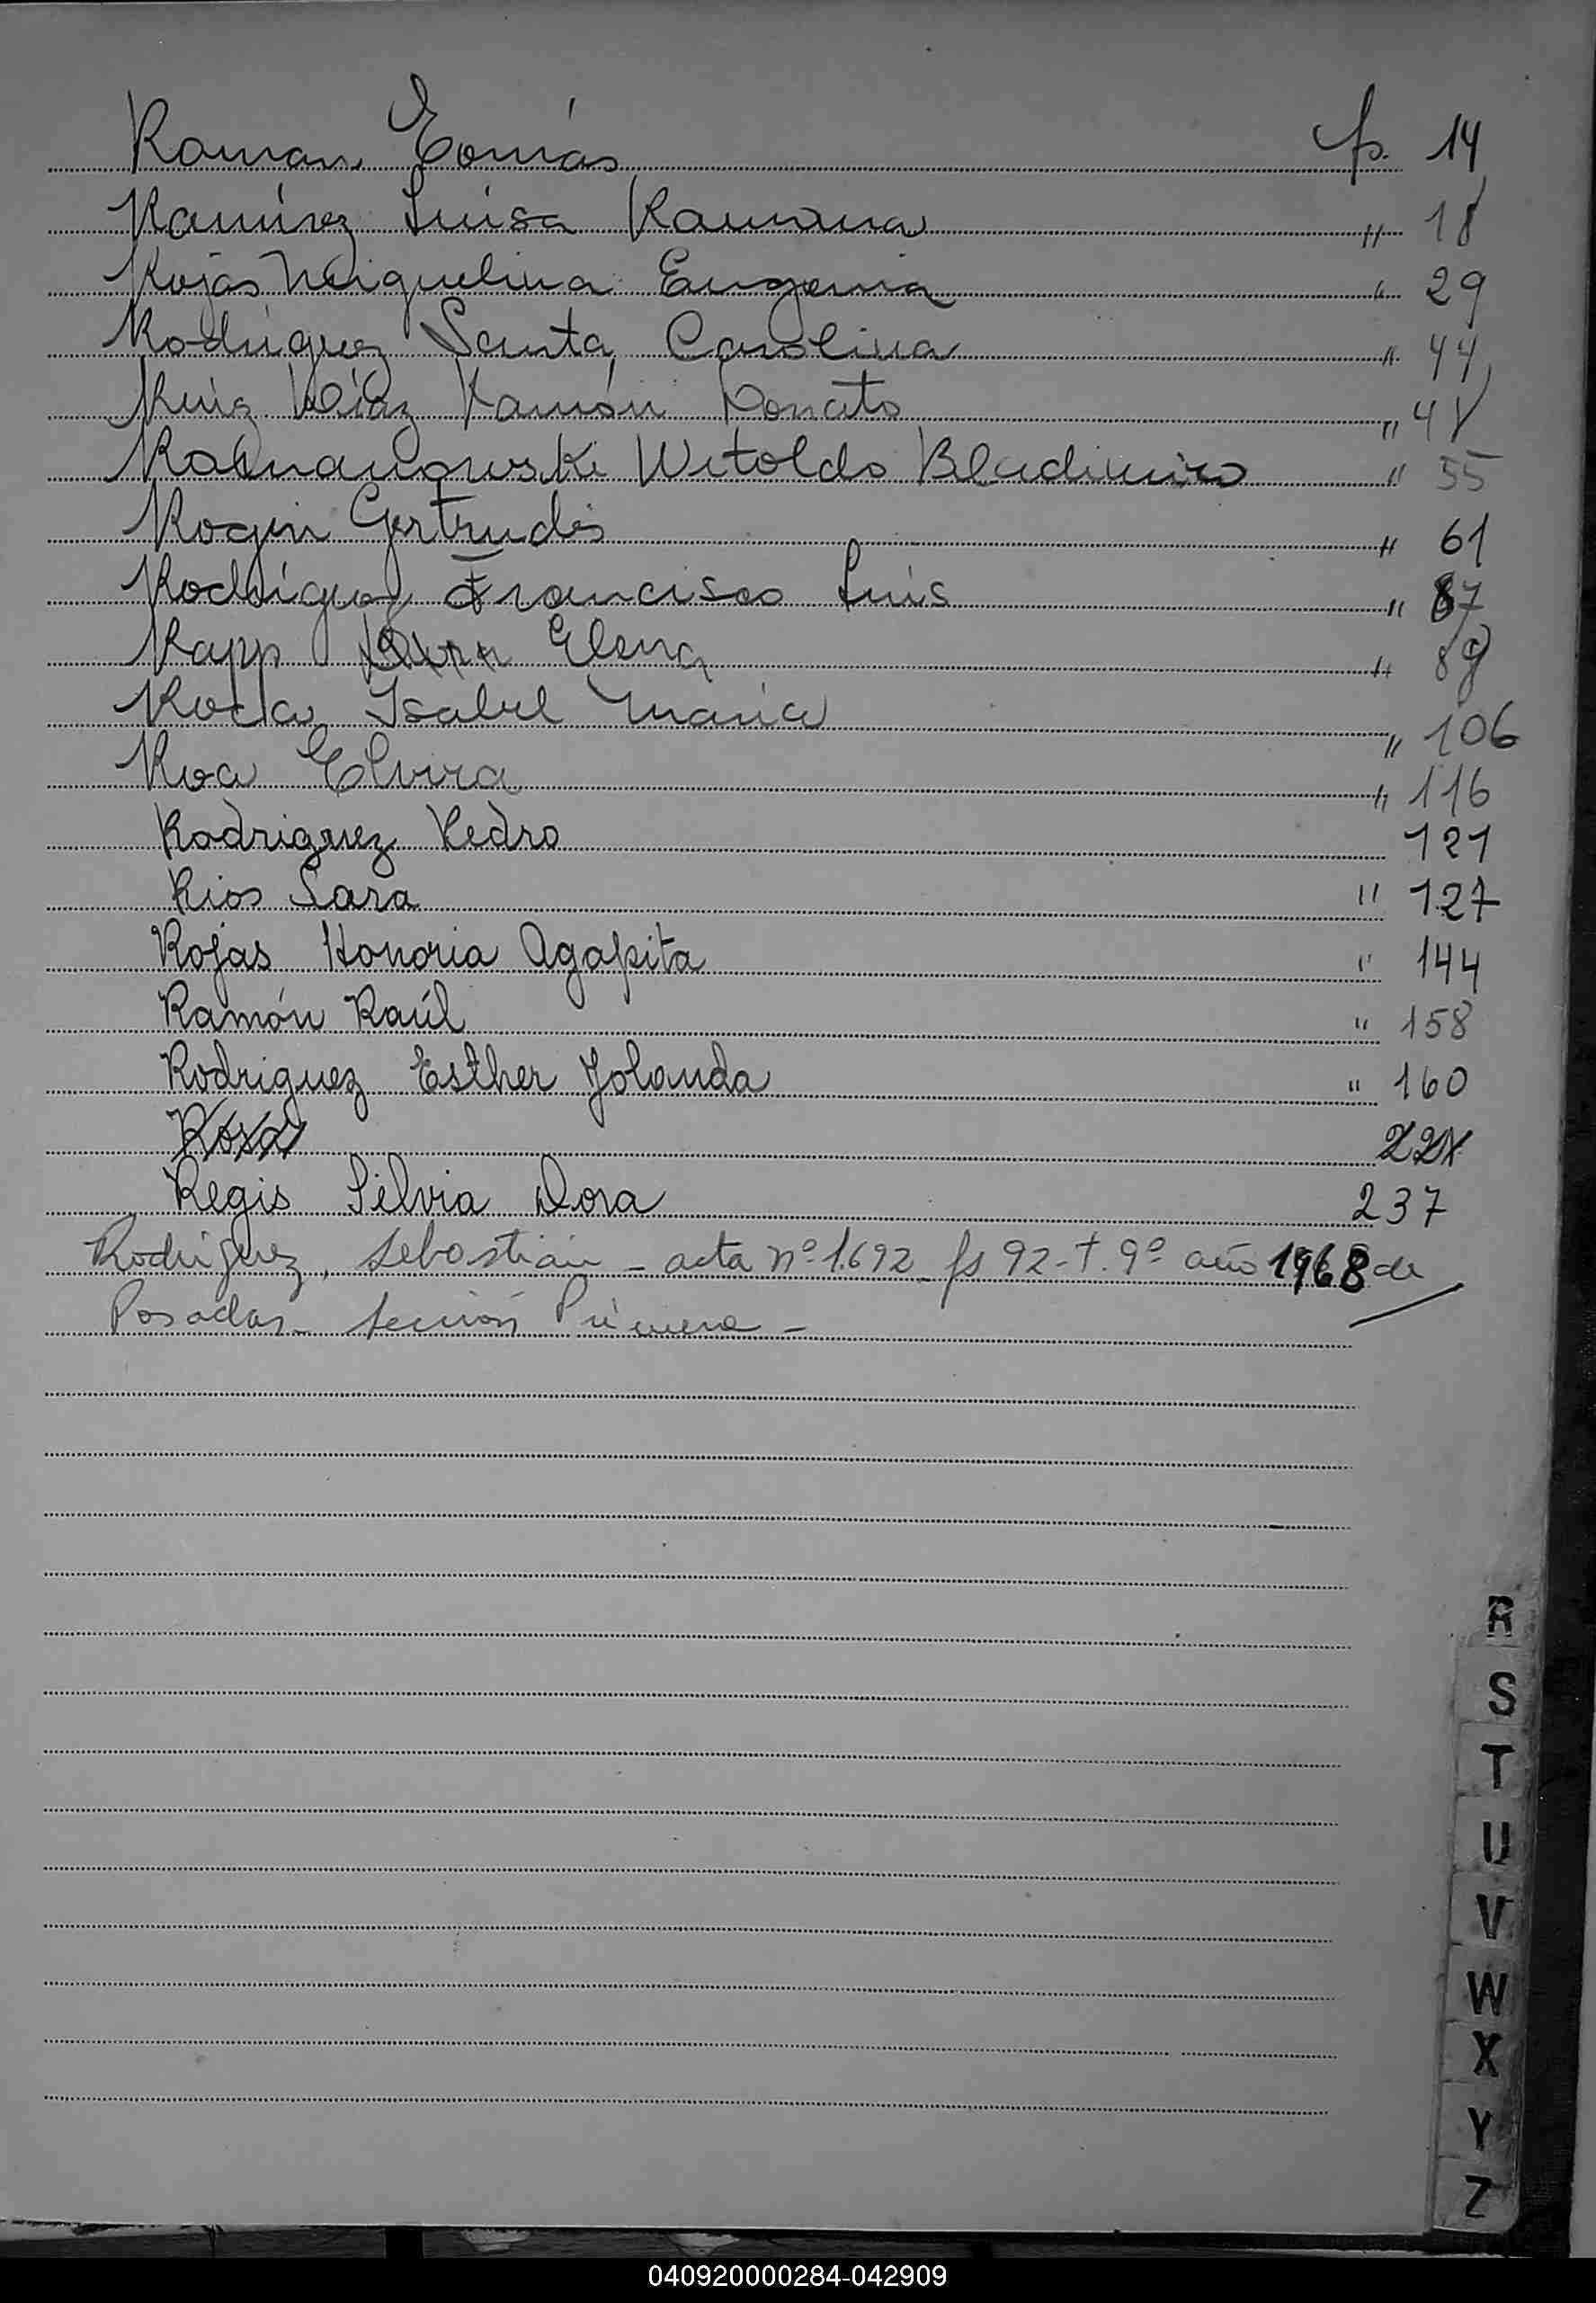 Roman Tomás fs. 14
Ramírez Luisa Ramona " 18
Rojas Miguelina Eugenia " 29
Rodríguez Santa Carolina " 44
Ruiz Díaz Ramón Donato " 48
Witoldo Bladimiro " 55
Rogin Gertrudis " 61
Rodríguez Francisco Luis " 87
Rapp Elena " 89
Roda Isabel María " 106
Roa Elvira " 116
Rodriguez Pedro 121
Rios Sara " 127
Rojas Honoria Agapita " 144
Ramón Raúl " 158
Rodriguez Esther Yolanda " 160
Rosa
Regis Silvia Dora 237
Rodríguez, Sebastián - acta nº 1.692 fs 92 - t. 9º año 1968 de
Posadas - Sección Primera -
R
S
T
U
V
W
X
Y
Z
040920000284-042909